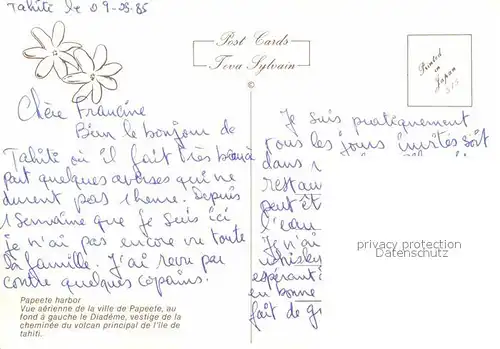 Tahiti le 09-08-85
Post Cards
Teva Sylvain
Printed
in
Japan
515
©
Chère Francine
Bien le bonjour de
Tahiti où il fait très beau à
part quelques averses qui ne
durent pas 1 heure. Depuis
1 semaine que je suis ici
je n'ai pas encore vu toute
la famille. J'ai revu par
contre quelques copains.
Je suis pratiquement
tous les jours invités soit
dans
restau
peut êt
l'eau
Je n'ai
whisky
espérant
en bonne
fait de g
privacy protection
Datenschutz
Papeete harbor
Vue aérienne de la ville de Papeete, au
fond à gauche le Diadème, vestige de la
cheminée du volcan principal de l'île de
tahiti.